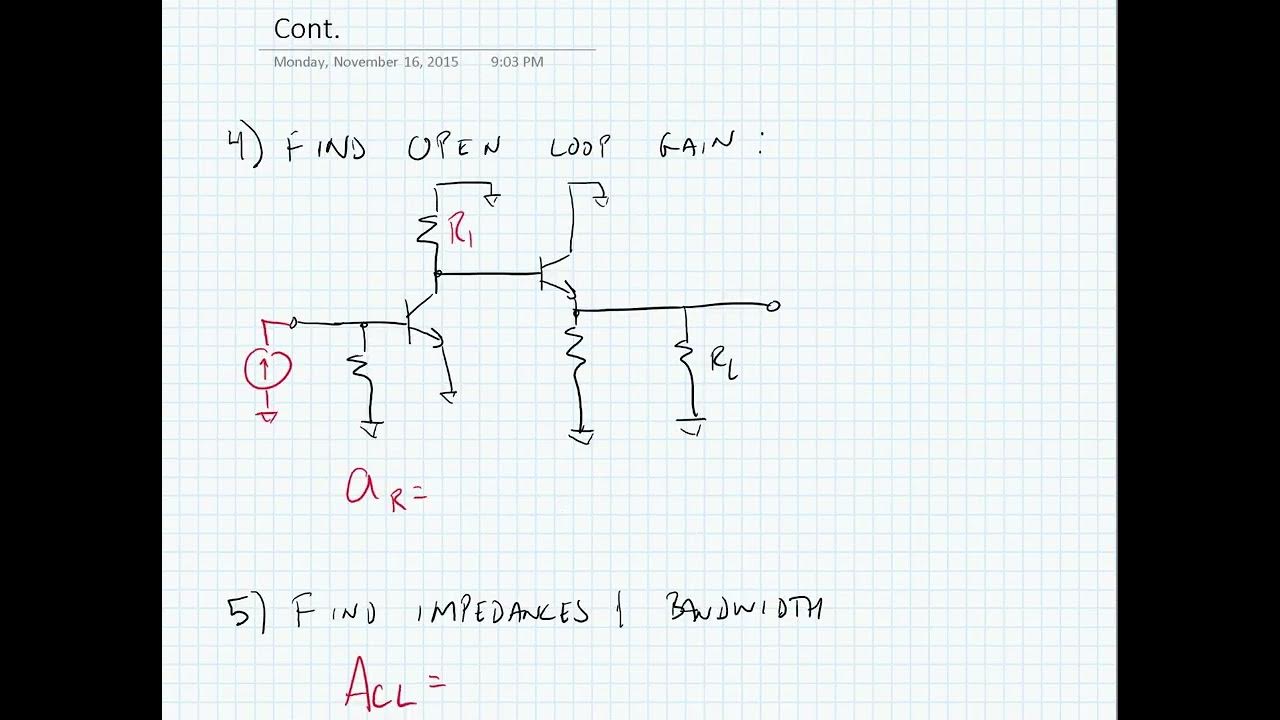 Cont.
Monday, November 16, 2015 9:03 PM
4) FIND OPEN LOOP GAIN:
R1
RL
aR=
5) FIND IMPEDANCES & BANDWIDTH
ACL=